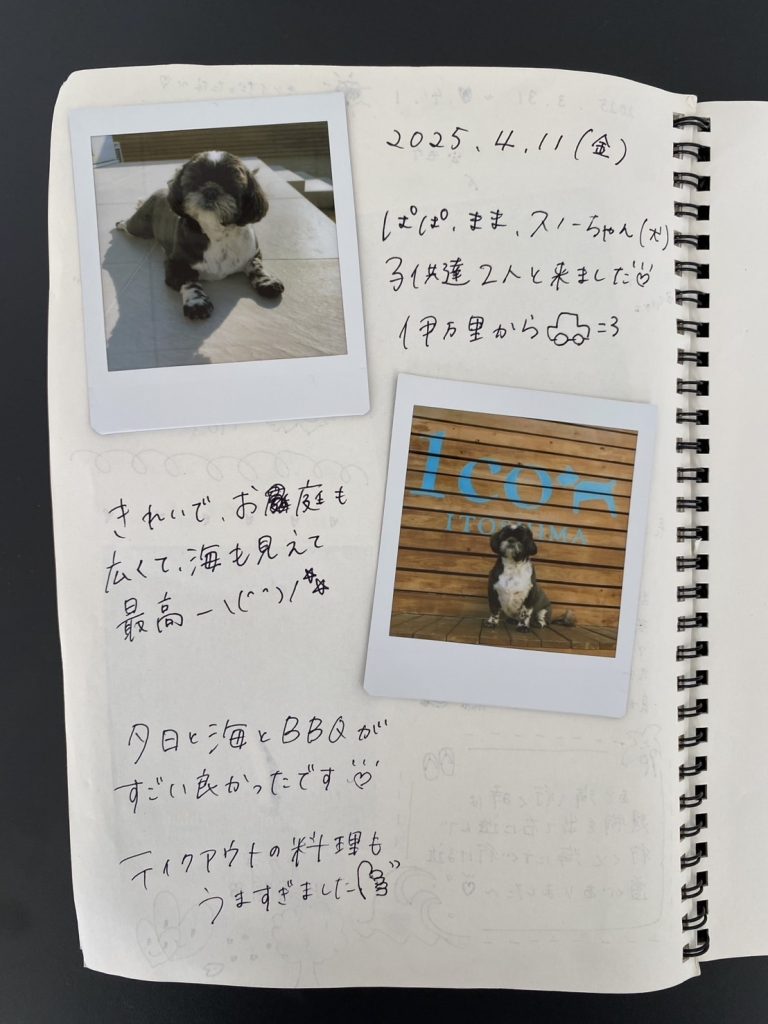 2025.4.11(金)
ぱぱ、まま、スノーちゃん(犬)
子供達2人と来ました♡
伊万里から =3
1co
ITOSHIMA
きれいで、お庭も
広くて、海も見えて
最高ー\(^^)/☆☆
夕日と海とBBQが
すごい良かったです♡
テイクアウトの料理も
うますぎました